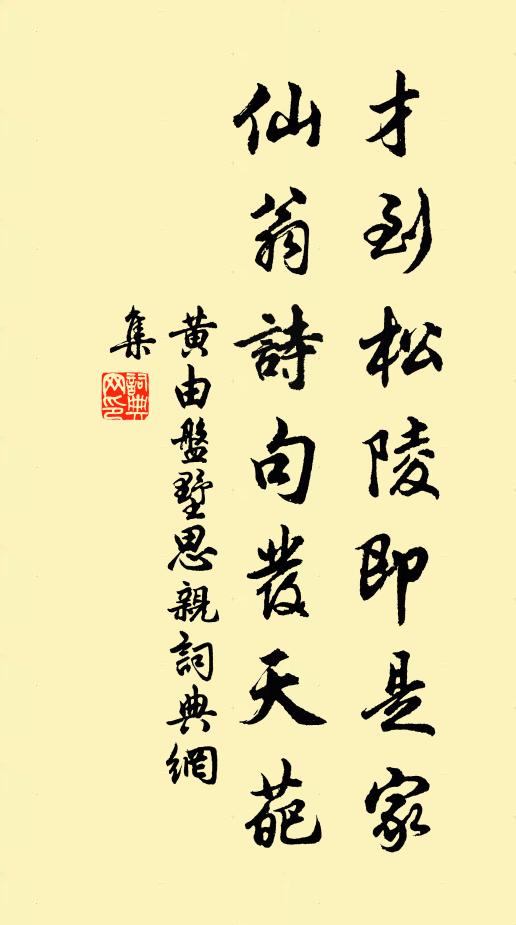 才到松陵即是家
仙翁詩句發天葩
黃由盤墅思親詞典網
集
詞典网印